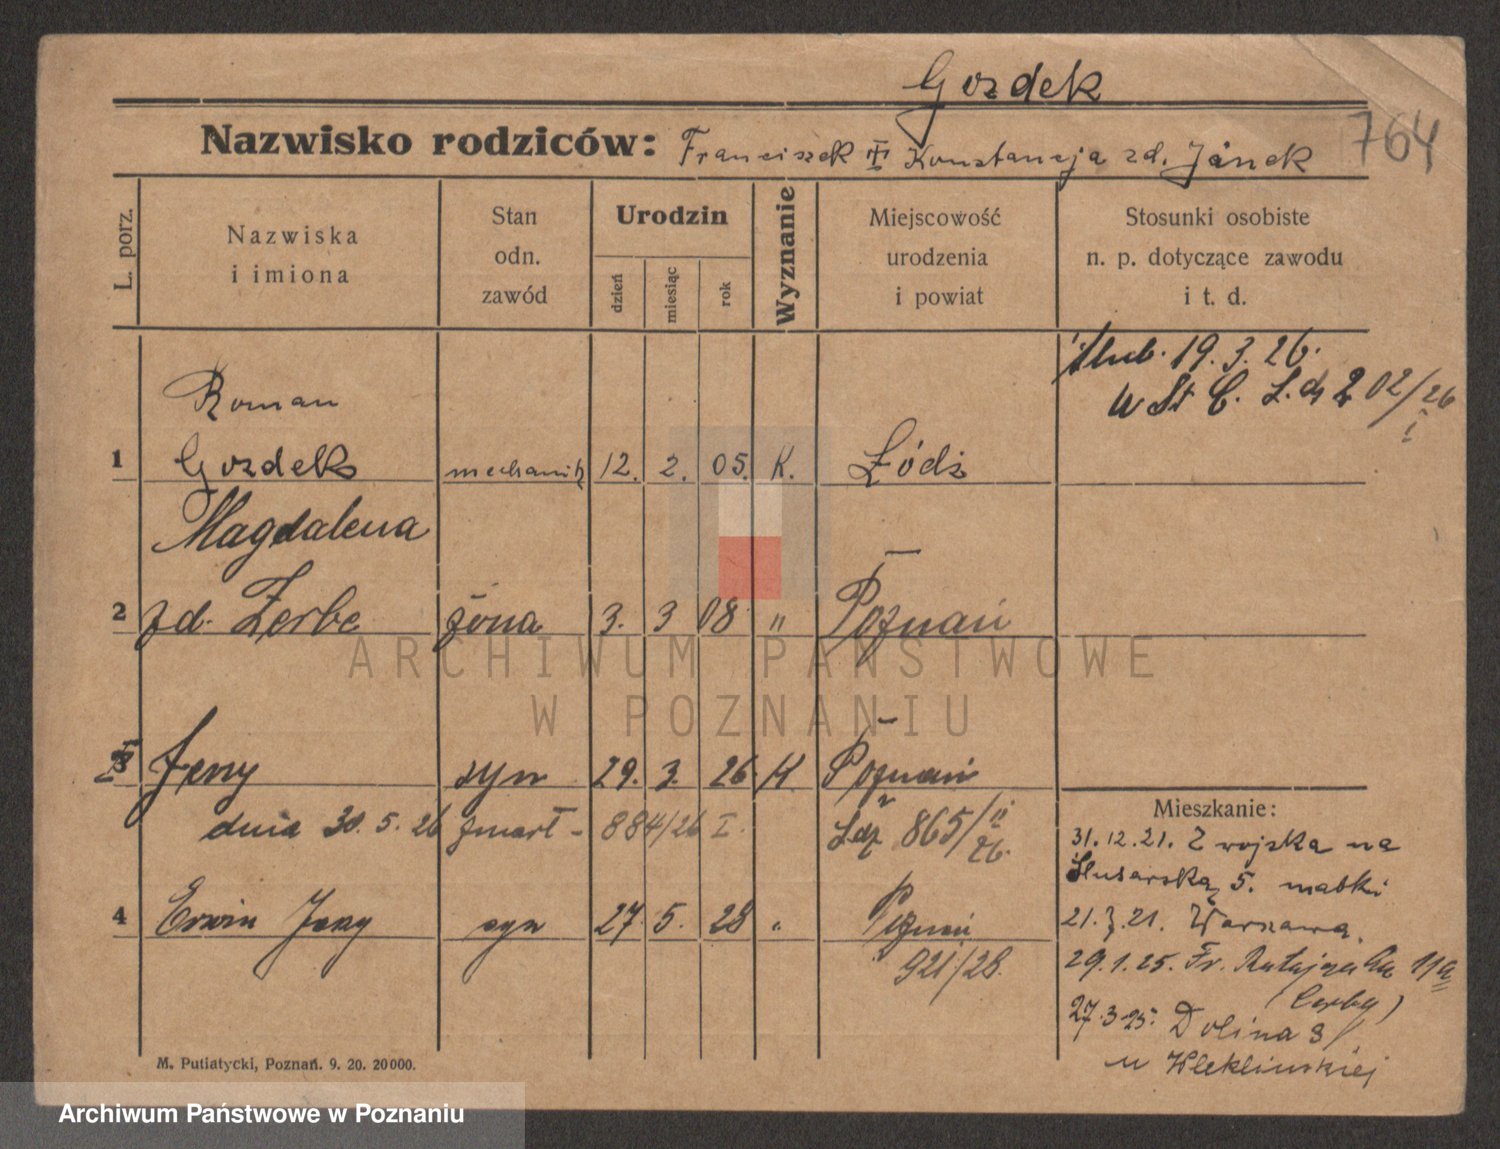 Gozdek
764
Nazwisko rodziców: Franciszek Konstancja zd. Janek
L. porz.
Nazwiska
i imiona
Stan
odn.
zawód
Urodzin
dzień
miesiąc
rok
Wyznanie
Miejscowość
urodzenia
i powiat
Stosunki osobiste
n. p. dotyczące zawodu
i t. d.
ślub. 19.3.26.
w St C. L. dz 202/26
I
Roman
1 Gozdek mechanik 12. 2. 05. K. Łódź
Magdalena
2 zd. Zerbe żona 3. 3 08 " Poznań
3 Jerzy syn 29. 3. 26 K Poznań
dnia 30.5.26 zmarł - 884/26 I. Ldz 865/II 26.
4 Erwin Jerzy syn 27. 5. 28 " Poznań
921/28.
Mieszkanie:
31.12.21. Z wojska na
Ślusarską 5. matki
21. 21. Warszawa.
29.1.25. Fr. Ratajczaka 11a
(Cerby)
27.3.25. Dolina 3/
u Kleklinskiej
M. Putiatycki, Poznań. 9. 20. 20000.
ARCHIWUM PAŃSTWOWE
W POZNANIU
Archiwum Państwowe w Poznaniu